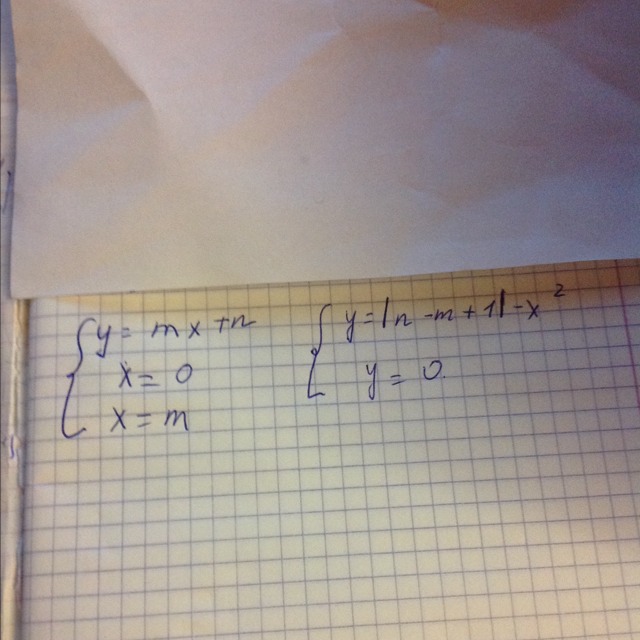 y = mx + n
x = 0
x = m
y = |n - m + 1| - x²
y = 0.